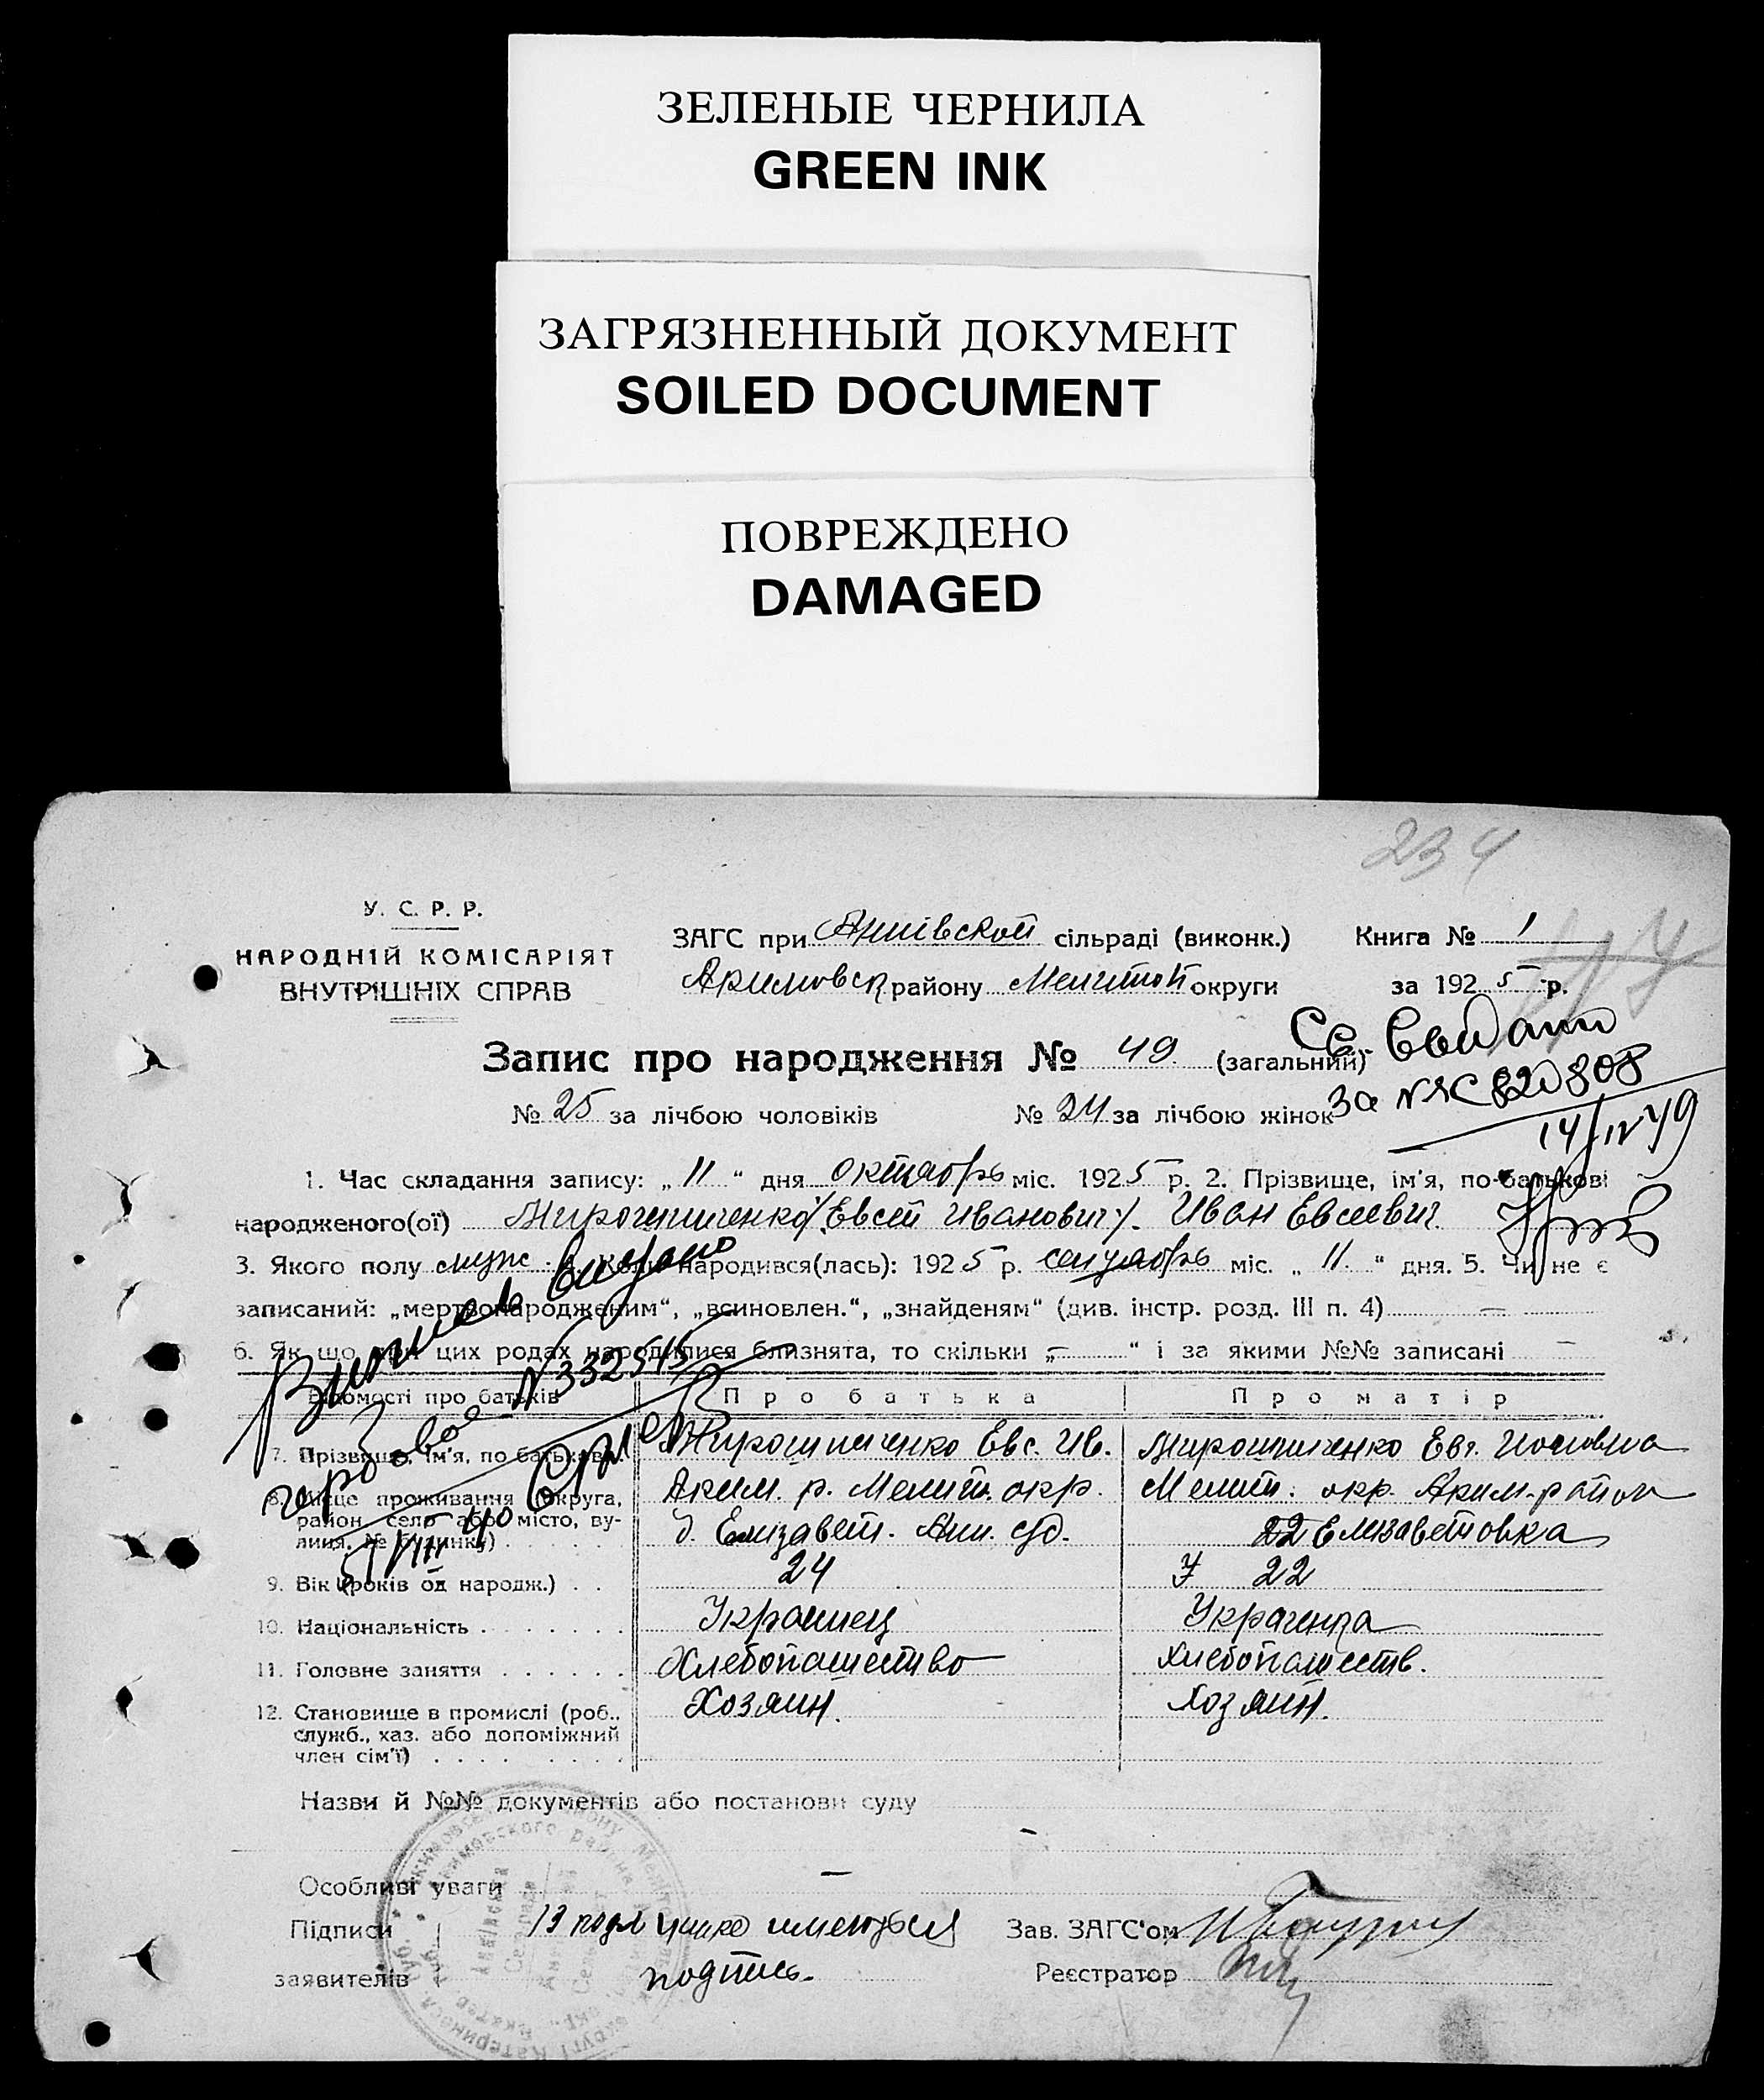 ЗЕЛЕНЫЕ ЧЕРНИЛА
GREEN INK
ЗАГРЯЗНЕННЫЙ ДОКУМЕНТ
SOILED DOCUMENT
ПОВРЕЖДЕНО
DAMAGED
234
У. С. Р. Р.
НАРОДНІЙ КОМІСАРІЯТ
ВНУТРІШНІХ СПРАВ
ЗАГС при Аннівской сільраді (виконк.) Книга № 1
Акимовск району Мелитоп округи за 1925 р.
Запис про народження № 49 (загальний)
Св. выдано
за № ЯС 820808
14/IV 49
№ 25 за лічбою чоловіків № 24 за лічбою жінок
1. Час складання запису: „ 11 “ дня октябрь міс. 1925 р. 2. Прізвище, ім'я, по-батькові
народженого(ої) Мирошниченко (Евсей Иванович). Иван Евсеевич
3. Якого полу муж. 4. Коли народився(лась): 1925 р. сентябрь міс. „ 11. “ дня. 5. Чи не є
записаний: „мертвонародженим“, „всиновлен.“, „знайденям“ (див. інстр. розд. III п. 4) —
6. Як що при цих родах народилися близнята, то скільки „ — “ і за якими №№ записані —
видано
№ 332515
5/VIII 40
Відомості про батьків Про батька Про матір
7. Прізвище, ім'я, по батькові Мирошниченко Евс. Ив. Мирошниченко Евг.
8. Місце проживання (округа, район, село або місто, вулиця, № будинку) Аким. р. Мелит. окр. Мелит. окр. Аким. район
д. Елизавет. Анн. с/о. Елизаветовка
9. Вік (років од народж.) 24 22
10. Національність Украинец Украинка
11. Головне заняття Хлебопашество Хлебопашеств.
12. Становище в промислі (роб., Хозяин. Хозяин.
служб., хаз. або допоміжний
член сім'ї)
Назви й №№ документів або постанови суду
Особливі уваги —
Підписи В подлиннике имеются Зав. ЗАГС'ом
заявителів подпись. Реєстратор